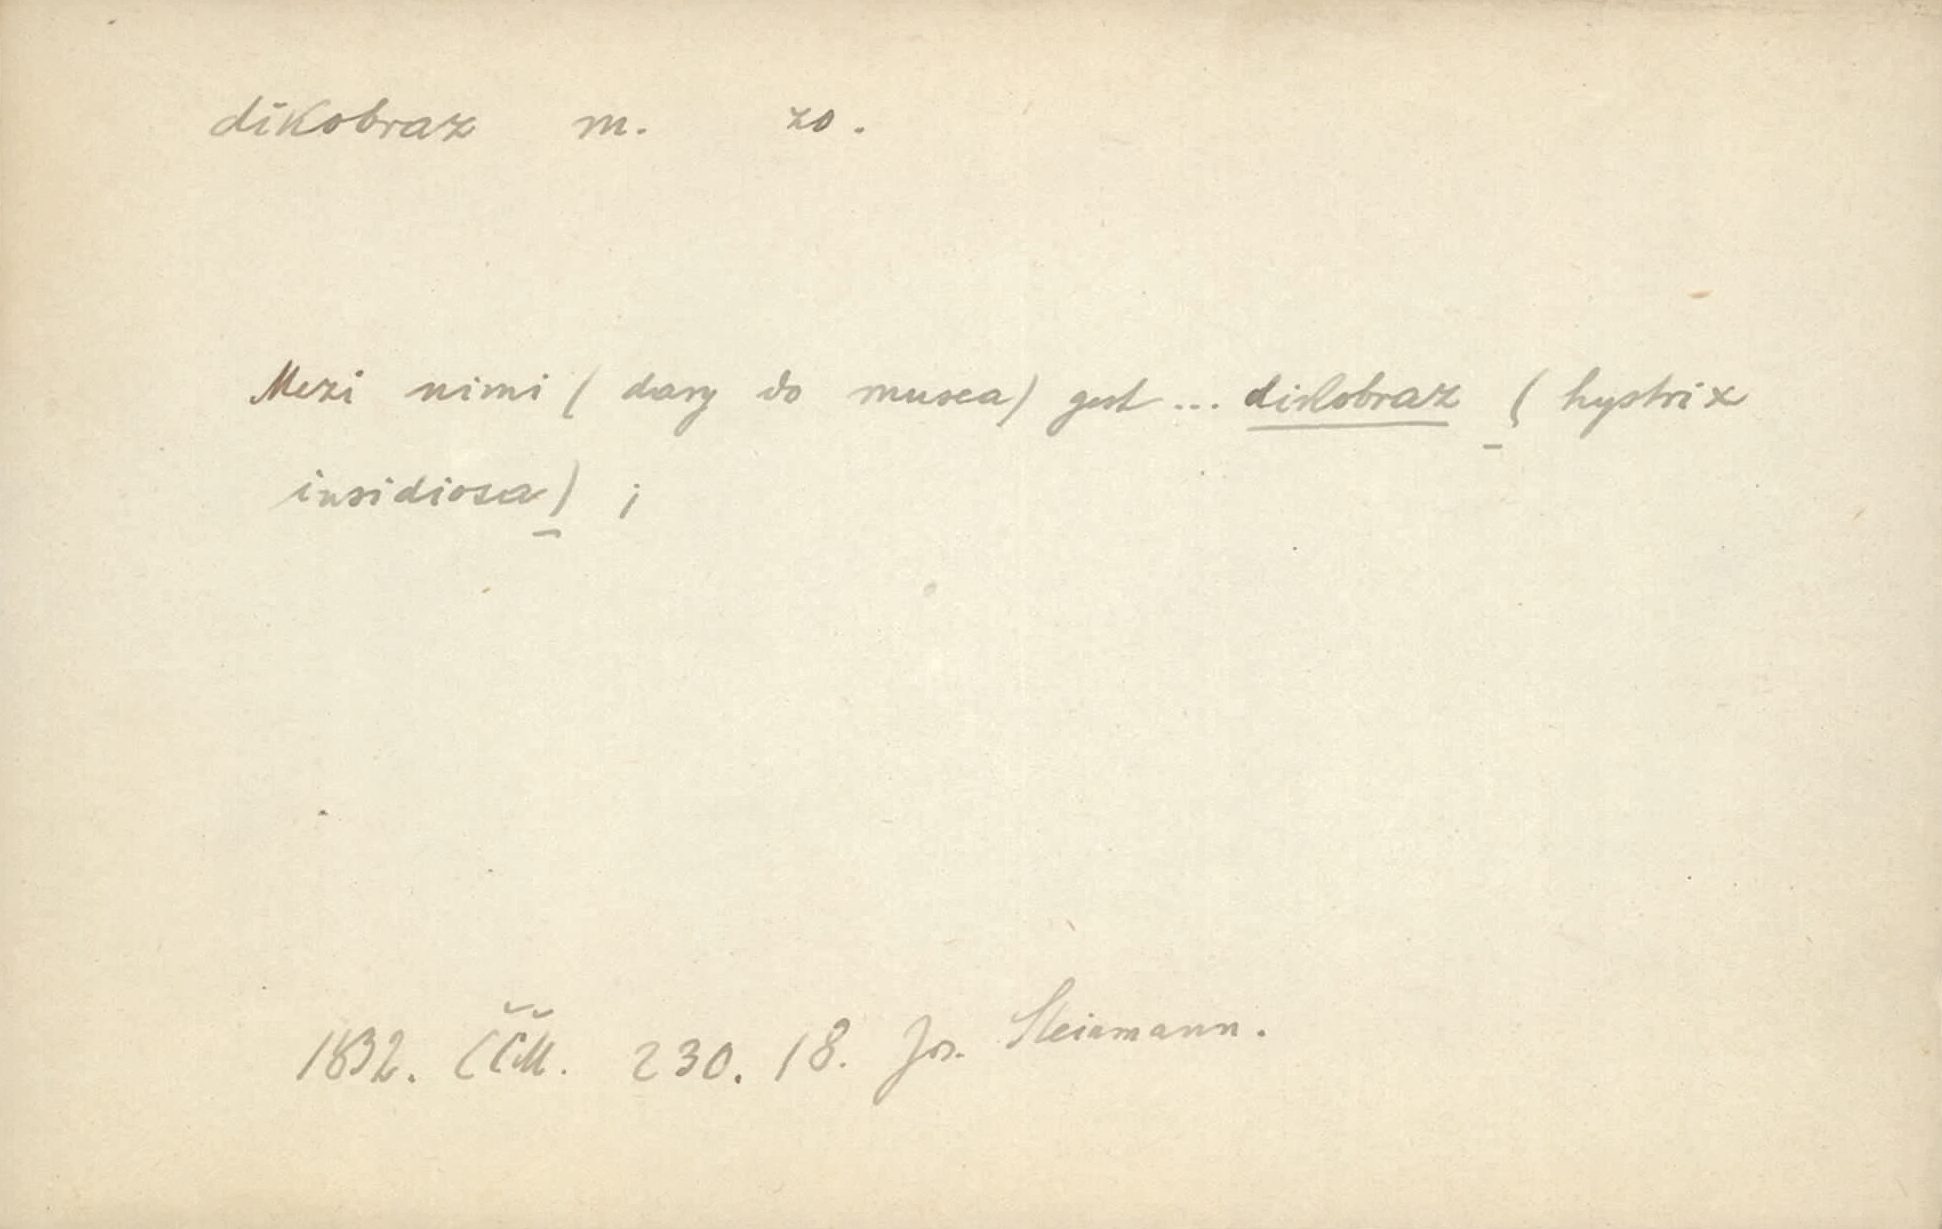 dikobraz m. zo.
Mezi nimi (dary do musea) gest ... dikobraz (hystrix
insidiosa) ;
1832. ČČM. 230. 18. Jos. Steinmann.